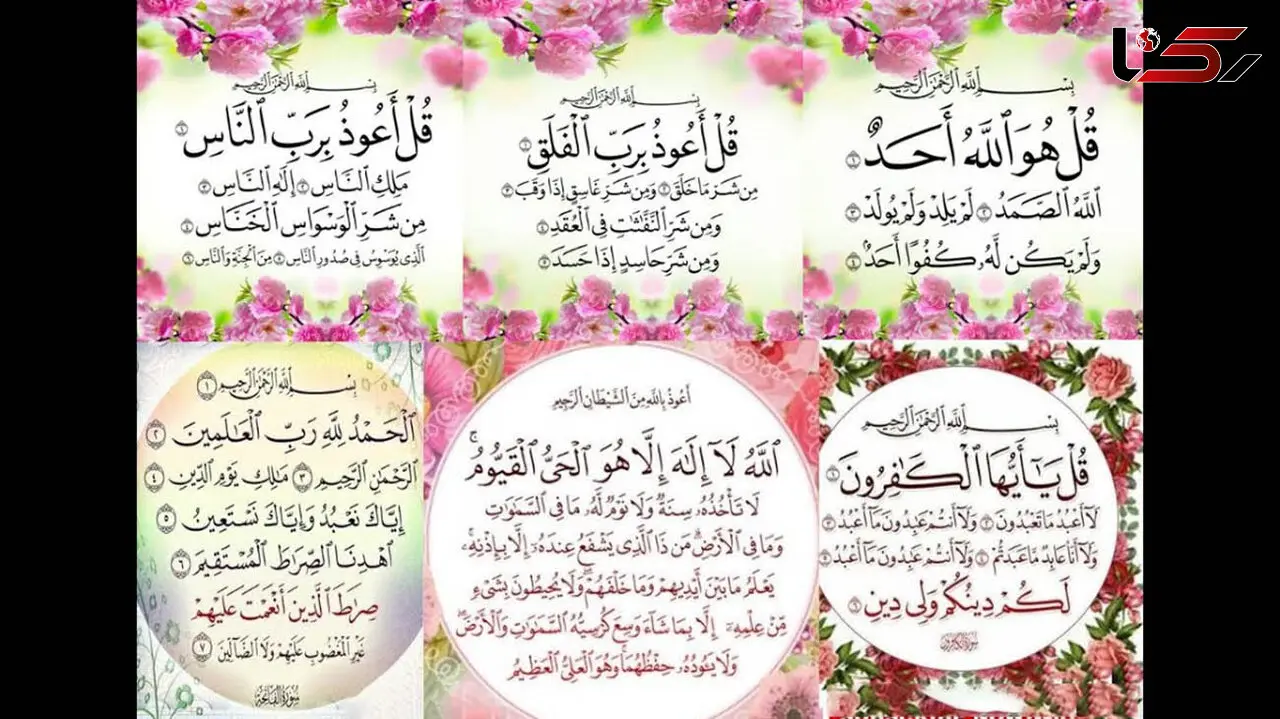 رکنا
بِسْمِ ٱللَّهِ ٱلرَّحْمَٰنِ ٱلرَّحِيمِ
قُلْ هُوَ ٱللَّهُ أَحَدٌ ١
ٱللَّهُ ٱلصَّمَدُ ٢ لَمْ يَلِدْ وَلَمْ يُولَدْ ٣
وَلَمْ يَكُن لَّهُۥ كُفُوًا أَحَدٌۢ ٤
بِسْمِ ٱللَّهِ ٱلرَّحْمَٰنِ ٱلرَّحِيمِ
قُلْ أَعُوذُ بِرَبِّ ٱلْفَلَقِ ١
مِن شَرِّ مَا خَلَقَ ٢ وَمِن شَرِّ غَاسِقٍ إِذَا وَقَبَ ٣
وَمِن شَرِّ ٱلنَّفَّٰثَٰتِ فِى ٱلْعُقَدِ ٤
وَمِن شَرِّ حَاسِدٍ إِذَا حَسَدَ ٥
بِسْمِ ٱللَّهِ ٱلرَّحْمَٰنِ ٱلرَّحِيمِ
قُلْ أَعُوذُ بِرَبِّ ٱلنَّاسِ ١
مَلِكِ ٱلنَّاسِ ٢ إِلَٰهِ ٱلنَّاسِ ٣
مِن شَرِّ ٱلْوَسْوَاسِ ٱلْخَنَّاسِ ٤
ٱلَّذِى يُوَسْوِسُ فِى صُدُورِ ٱلنَّاسِ ٥ مِنَ ٱلْجِنَّةِ وَٱلنَّاسِ ٦
بِسْمِ ٱللَّهِ ٱلرَّحْمَٰنِ ٱلرَّحِيمِ
قُلْ يَٰٓأَيُّهَا ٱلْكَٰفِرُونَ ١
لَآ أَعْبُدُ مَا تَعْبُدُونَ ٢ وَلَآ أَنتُمْ عَٰبِدُونَ مَآ أَعْبُدُ ٣
وَلَآ أَنَا۠ عَابِدٌ مَّا عَبَدتُّمْ ٤ وَلَآ أَنتُمْ عَٰبِدُونَ مَآ أَعْبُدُ ٥
لَكُمْ دِينُكُمْ وَلِىَ دِينِ ٦
سُورَةُ الكَافِرُونَ
أَعُوذُ بِاللَّهِ مِنَ الشَّيْطَانِ الرَّجِيمِ
ٱللَّهُ لَآ إِلَٰهَ إِلَّا هُوَ ٱلْحَىُّ ٱلْقَيُّومُ ۚ
لَا تَأْخُذُهُۥ سِنَةٌ وَلَا نَوْمٌ ۚ لَّهُۥ مَا فِى ٱلسَّمَٰوَٰتِ
وَمَا فِى ٱلْأَرْضِ ۗ مَن ذَا ٱلَّذِى يَشْفَعُ عِندَهُۥٓ إِلَّا بِإِذْنِهِۦ ۚ
يَعْلَمُ مَا بَيْنَ أَيْدِيهِمْ وَمَا خَلْفَهُمْ ۖ وَلَا يُحِيطُونَ بِشَىْءٍ
مِّنْ عِلْمِهِۦٓ إِلَّا بِمَا شَآءَ ۚ وَسِعَ كُرْسِيُّهُ ٱلسَّمَٰوَٰتِ وَٱلْأَرْضَ ۖ
وَلَا يَـُٔودُهُۥ حِفْظُهُمَا ۚ وَهُوَ ٱلْعَلِىُّ ٱلْعَظِيمُ
بِسْمِ ٱللَّهِ ٱلرَّحْمَٰنِ ٱلرَّحِيمِ ١
ٱلْحَمْدُ لِلَّهِ رَبِّ ٱلْعَٰلَمِينَ ٢
ٱلرَّحْمَٰنِ ٱلرَّحِيمِ ٣ مَٰلِكِ يَوْمِ ٱلدِّينِ ٤
إِيَّاكَ نَعْبُدُ وَإِيَّاكَ نَسْتَعِينُ ٥
ٱهْدِنَا ٱلصِّرَٰطَ ٱلْمُسْتَقِيمَ ٦
صِرَٰطَ ٱلَّذِينَ أَنْعَمْتَ عَلَيْهِمْ
غَيْرِ ٱلْمَغْضُوبِ عَلَيْهِمْ وَلَا ٱلضَّآلِّينَ ٧
سُورَةُ الفَاتِحَةِ